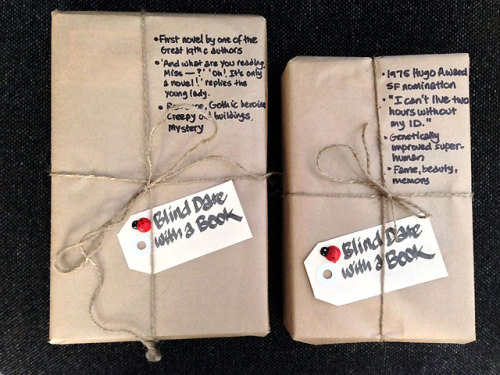 •First novel by one of the
Great 19th c authors
•'And what are you reading,
Miss —?' 'Oh! It's only
a novel!' replies the
young lady.
• Gothic heroine,
Creepy old buildings,
mystery
Blind Date
with a Book
•1975 Hugo Award
SF nomination
• "I can't live two
hours without
my I.D."
•Genetically
improved super-
human
• Fame, beauty,
memory
Blind Date
with a Book